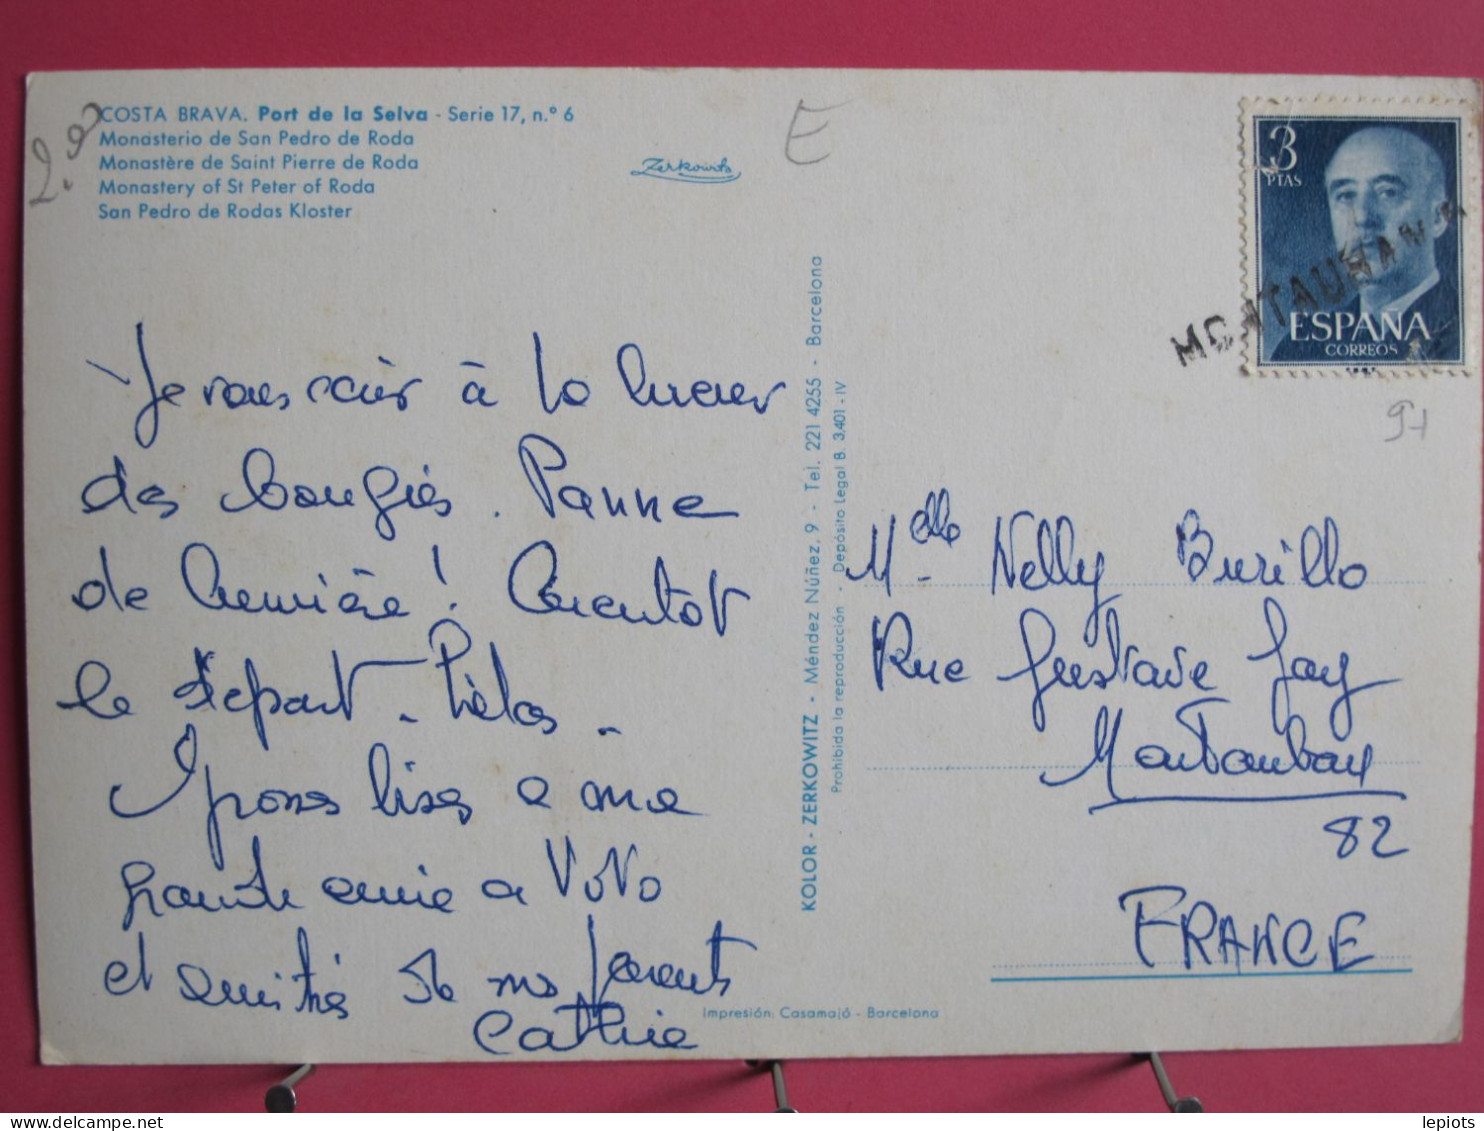 COSTA BRAVA. Port de la Selva - Serie 17, n.º 6
Monasterio de San Pedro de Roda
Monastère de Saint Pierre de Roda
Monastery of St Peter of Roda
San Pedro de Rodas Kloster
Zerkowitz
E
3
PTAS
ESPAÑA
CORREOS
MONTAUBAN
91
Je vous écris à la lueur
des bougies. Panne
de lumière ! Bientot
le départ - Hélas -
Grosses bises a ma
grande amie a
et amitiés de mes parents
Cathie
KOLOR - ZERKOWITZ - Méndez Núñez, 9 - Tel. 221 4255 - Barcelona
Prohibida la reproducción - Depósito Legal B. 3.401 - IV
Melle Nelly Burillo
Rue Gustave Jay
Montauban
82
FRANCE
Impresión: Casamajó - Barcelona
lepiots